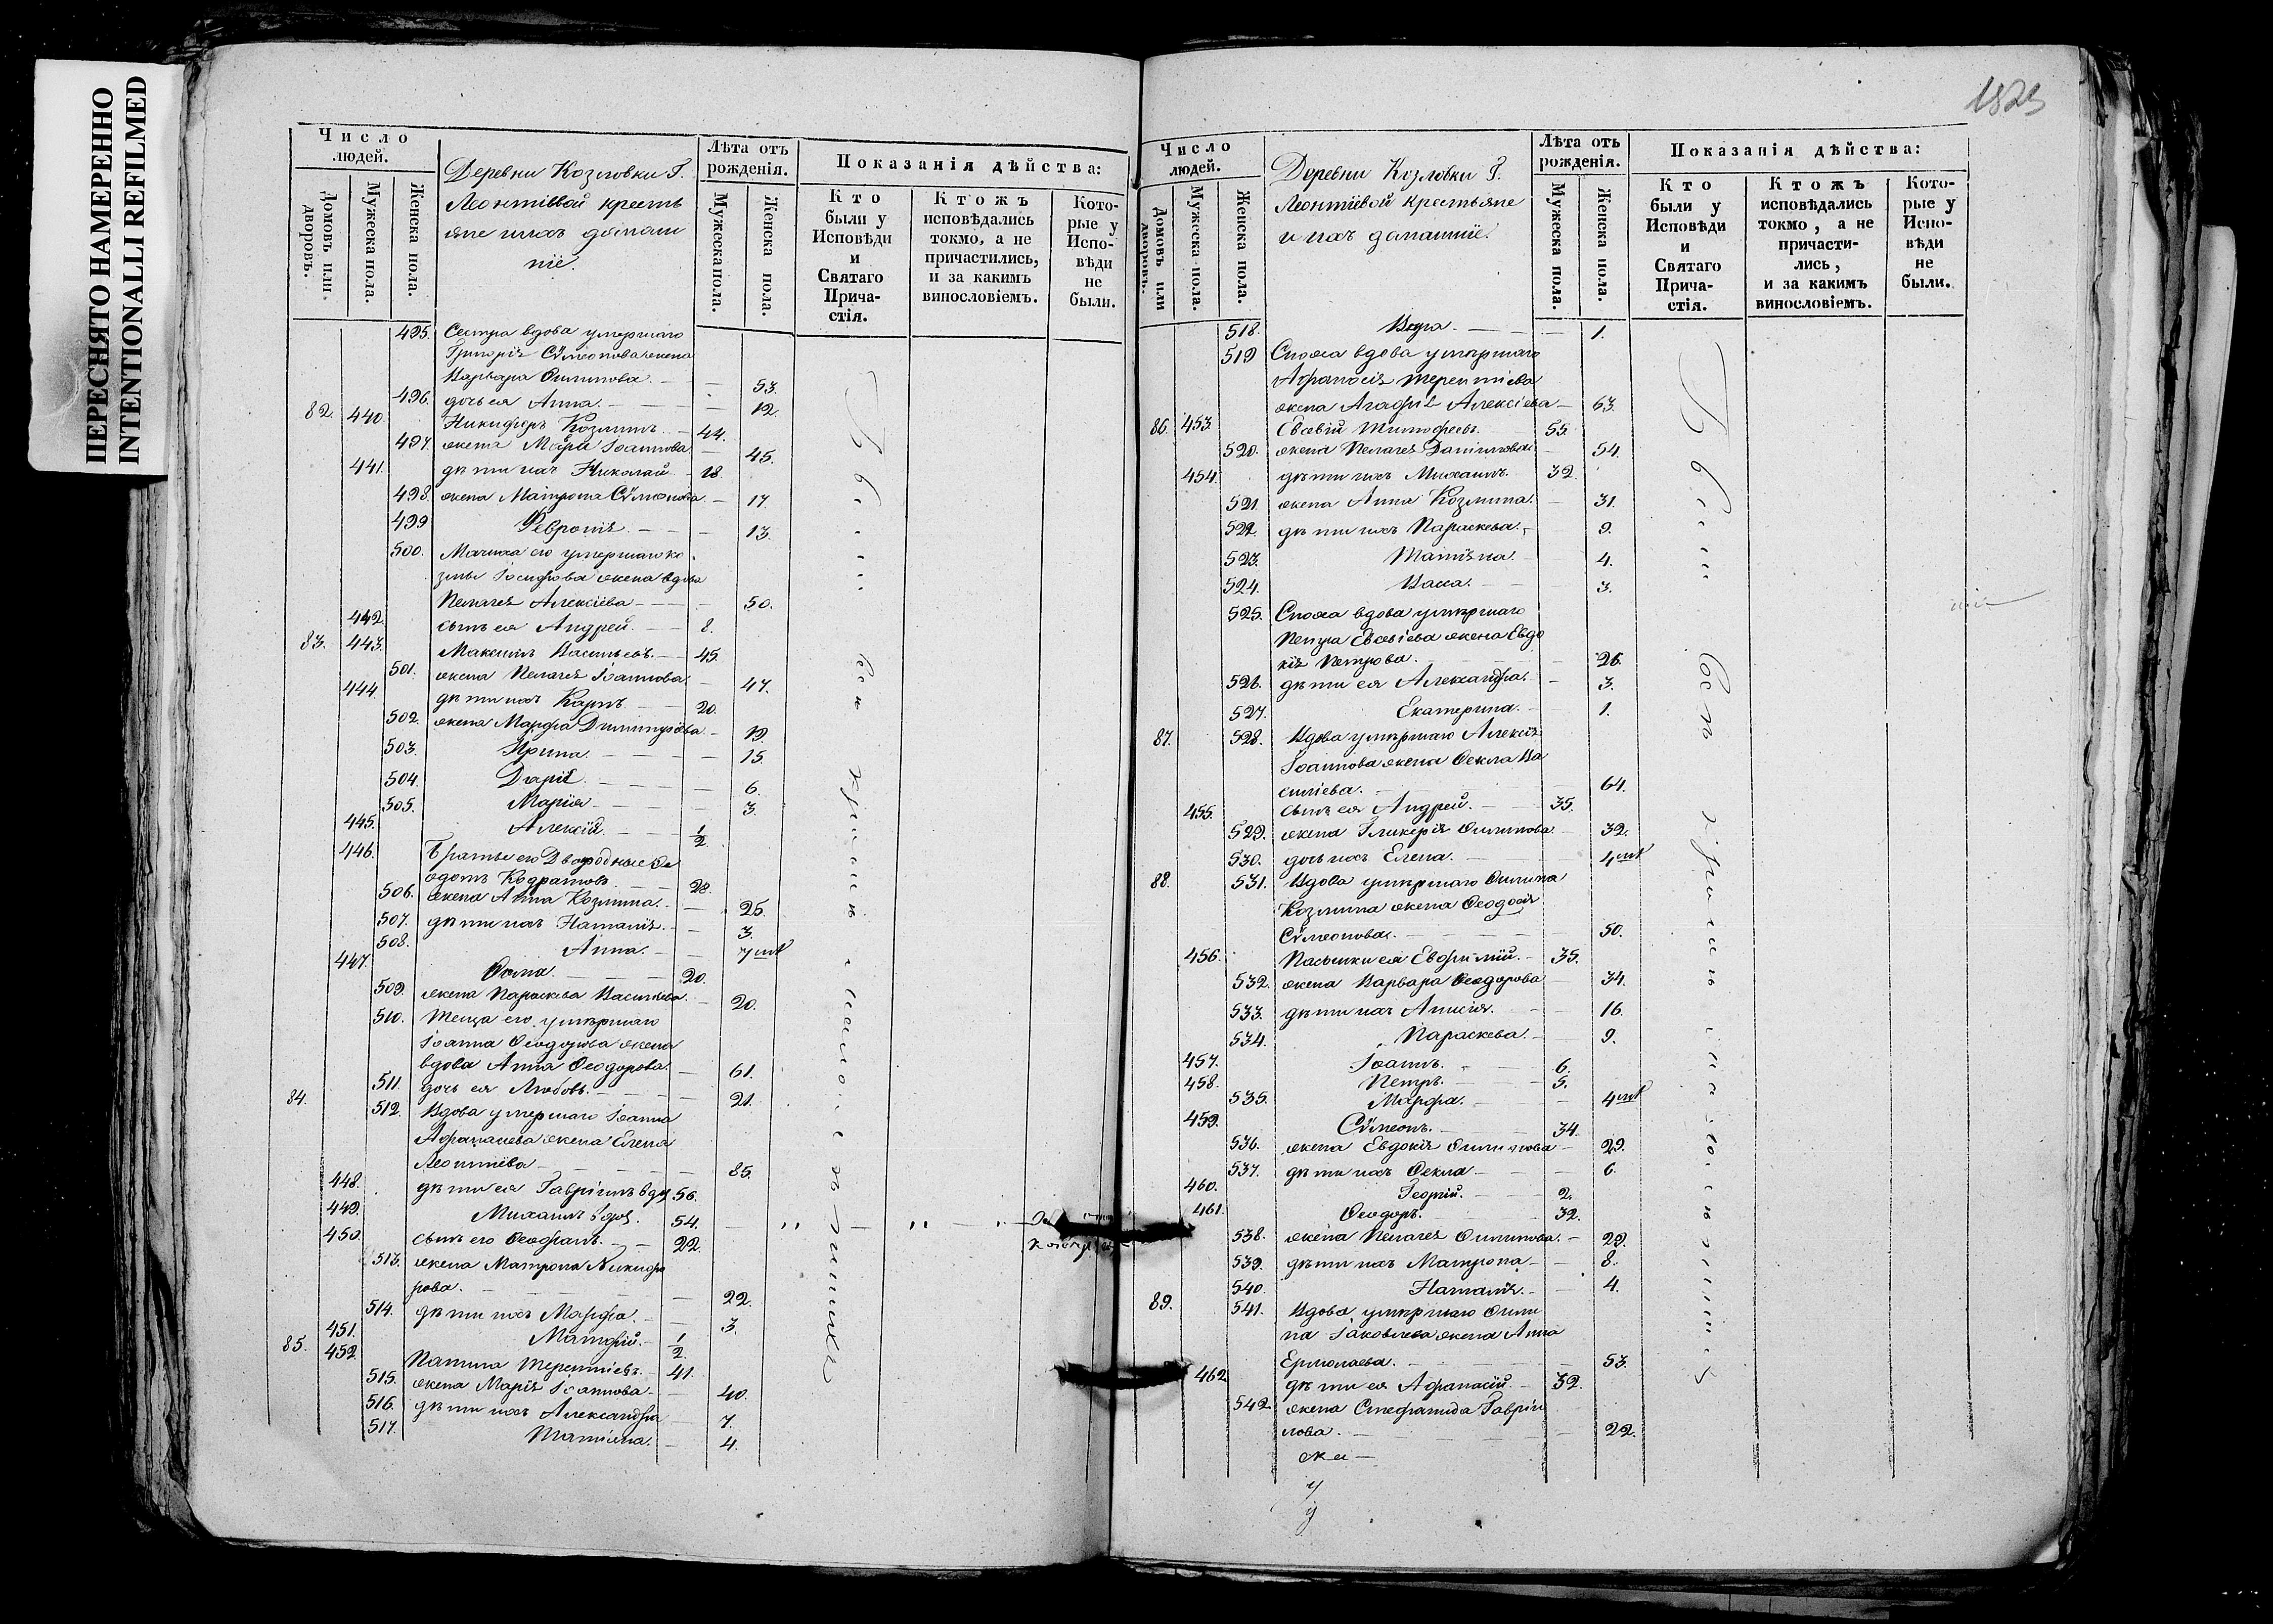 ПЕРЕСНЯТО НАМЕРЕННО
INTENTIONALLI REFILMED
Число людей.
Домовъ или дворовъ.
Мужеска пола.
Женска пола.
Деревни Козловки Г.
Леонтiевой кресть
яне и ихъ домаш
нiе.
Лѣта отъ рожденiя.
Мужеска пола.
Женска пола.
Показанiя дѣйства:
Кто были у Исповѣди и Святаго Прича-стiя.
Ктожъ исповѣдались токмо, а не причастились, и за какимъ винословiемъ.
Кото-рые у Испо-вѣди не были.
495. Сестра вдова умершаго
Григорiя Сѵмеонова жена
Варвара Филипова. — — 53.
496. дочь ея Анна. — — 12.
82. 440. Никифоръ Козминъ. — 44.
497. жена Марiя Iоаннова — 45.
441. дѣти ихъ Николай — 18.
498. жена Матрона Сѵмеонова — 17.
499 Феврония — — 13.
500. Мачиха его умершаго Ко
змы Iосифова жена вдова
Пелагея Алексiева — — 50.
442. сынъ ея Андрей. — 8.
83. 443. Максимъ Васильевъ. — 45.
501. жена Пелагея Iоаннова — 47.
444. дѣти ихъ Карпъ — 20.
502. жена Марфа Димитрiева — 19.
503. Ирина. — — 15.
504. Дарiя — — 6.
505. Марiя — — 3.
445. Алексiй. — 1/2
446. Братья его Двоюродные Фе
одотъ Кодратовъ — 28.
506. жена Анна Козмина. — 25.
507. дѣти ихъ Наталiя. — 3.
508. Анна. — — 7 мѣ
447. Фома. — 20.
509. жена Параскева Василiева. — 20.
510. Теща его умершаго
Iоанна Феодорова жена
вдова Анна Феодорова. — 61.
511. дочь ея Любовь. — — 21.
84. 512. Вдова умершаго Iоанна
Афанасиева жена Елена
Леонтiева — — 85.
448. дѣти ея Гаврiилъ вдов 56.
449. Михаилъ вдов. 54. — „ — „ —
450. сынъ его Феофанъ. — 22.
513. жена Матрона Никифо
рова. — — 22.
514. дѣти ихъ Марфа. — 3.
451. Матфiй. — 1/2
85. 452. Патапа Терентiевъ. 41.
515. жена Марiя Iоаннова. — 40.
516. дѣти ихъ Александра — 7.
517. Татiяна. — 4.
1823
Число людей.
Домовъ или дворовъ.
Мужеска пола.
Женска пола.
Деревни Козловки Г.
Леонтiевой крестьяне
и ихъ домашнiе.
Лѣта отъ рожденiя.
Мужеска пола.
Женска пола.
Показанiя дѣйства:
Кто были у Исповѣди и Святаго Прича-стiя.
Ктожъ исповѣдались токмо, а не причасти-лись, и за какимъ винословiемъ.
Кото-рые у Испо-вѣди не были.
518. Вѣра. — — 1.
519 Сноха вдова умершаго
Афанасiя Терентiева
жена Агафiя Алексiева — 63.
86. 453. Евсевiй Тимофеевъ. 55.
520. жена Пелагея Данiиловая — 54.
454. дѣти ихъ Михаилъ. 32.
521. жена Анна Козмина. — 31.
522. дѣти ихъ Параскева. — 9.
523. Татiяна. — 4.
524. Васса. — 3.
525. Сноха вдова умершаго
Петра Евсевiева жена Евдо
кiя Петрова. — 26.
526. дѣти ея Александра. — 3.
527. Екатерина. — 1.
87. 528. Вдова умершаго Алексiя
Iоаннова жена Фекла Ва
силiева. — 64.
455. сынъ ея Андрей. — 35.
529. жена Гликерiя Филипова. — 32.
530. дочь ихъ Елена. — 4 мѣ
88. 531. Вдова умершаго Филипа
Козмина жена Феодосiя
Сѵмеонова. — 50.
456. Пасынки ея Евфимiй. — 35.
532. жена Варвара Феодорова — 34.
533. дѣти ихъ Анисiя. — 16.
534. Параскева. — 9.
457. Iоаннъ. — 6.
458. Петръ. — 5.
535. Марфа. — 4 мѣ
459. Сѵмеонъ. — 34.
536. жена Евдокiя Филипова — 29.
537. дѣти ихъ Фекла — 6
460. Георгiй. — 2.
461. Феодоръ. 32.
538. жена Пелагея Филипова. — 29.
539. дѣти ихъ Матрона — 8.
540. Наталiя. — 4.
89. 541. Вдова умершаго Фили
па Iаковлева жена Анна
Ермолаева. — 53.
462 дѣти ея Афанасiй. — 32.
542 жена Стефанида Гаврiи
лова. — 22.